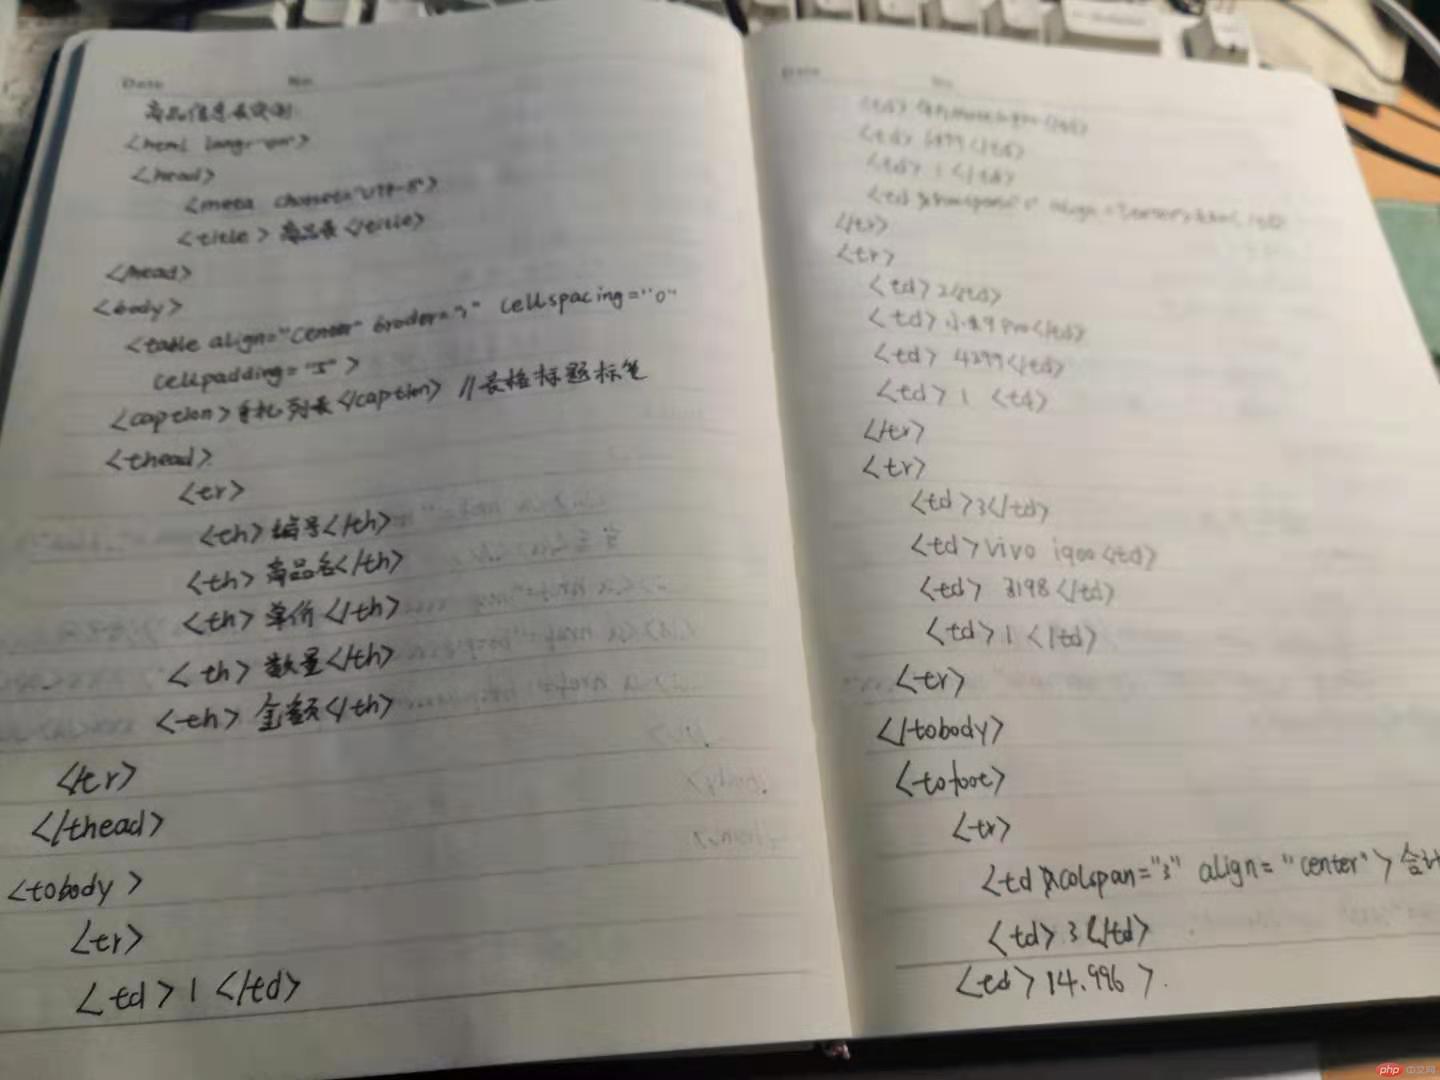 Date No.
商品信息表实例:
<html lang="en">
<head>
<meta charset="UTF-8">
<title>商品表</title>
</head>
<body>
<table align="center" broder="1" cellspacing="0"
cellpadding="5">
<caption>手机列表</caption> //表格标题标笺
<thead>
<tr>
<th>编号</th>
<th>商品名</th>
<th>单价</th>
<th>数量</th>
<th>金额</th>
</tr>
</thead>
<tobody>
<tr>
<td>1</td>
Date No.
<td> </td>
<td> </td>
<td>1</td>
<td
</tr>
<tr>
<td>2</td>
<td>小米9 Pro</td>
<td>4299</td>
<td>1 <td>
</tr>
<tr>
<td>3</td>
<td>vivo iqoo<td>
<td>3198</td>
<td>1</td>
<tr>
</tobody>
<tofoot>
<tr>
<td colspan="3" align="center">合计
<td>3</td>
<td>14.996>
php 中文网